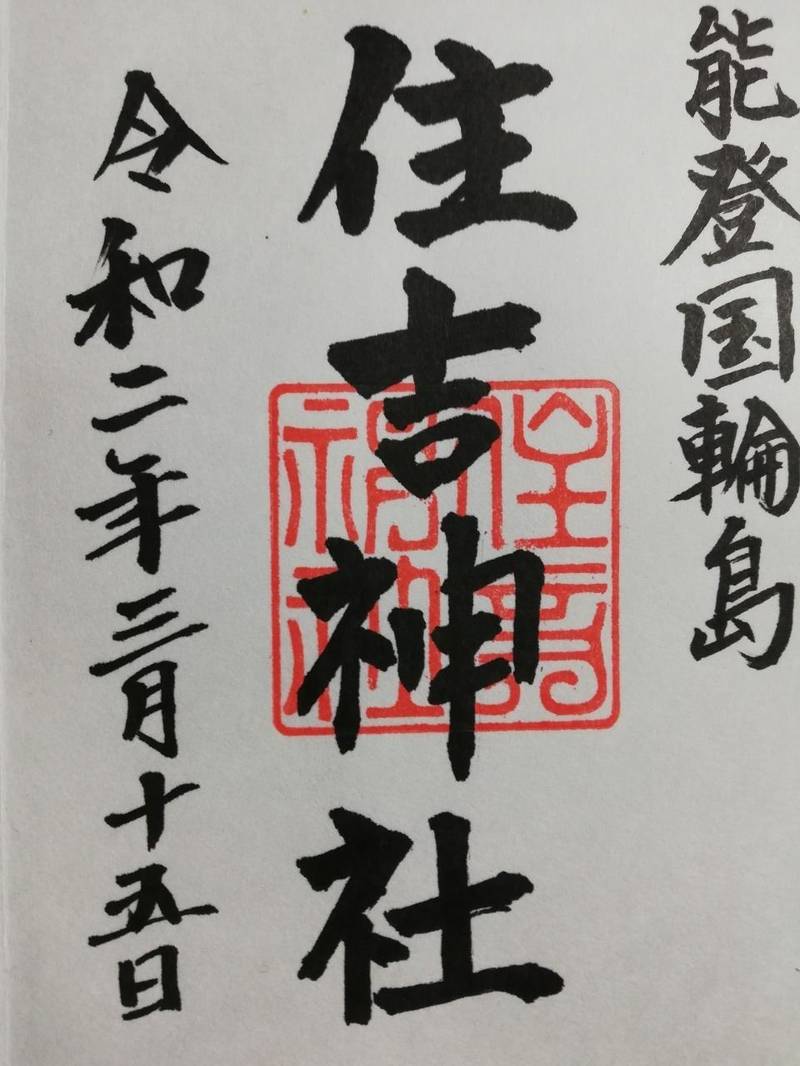 能登国輪島
住吉神社
令和二年三月十五日